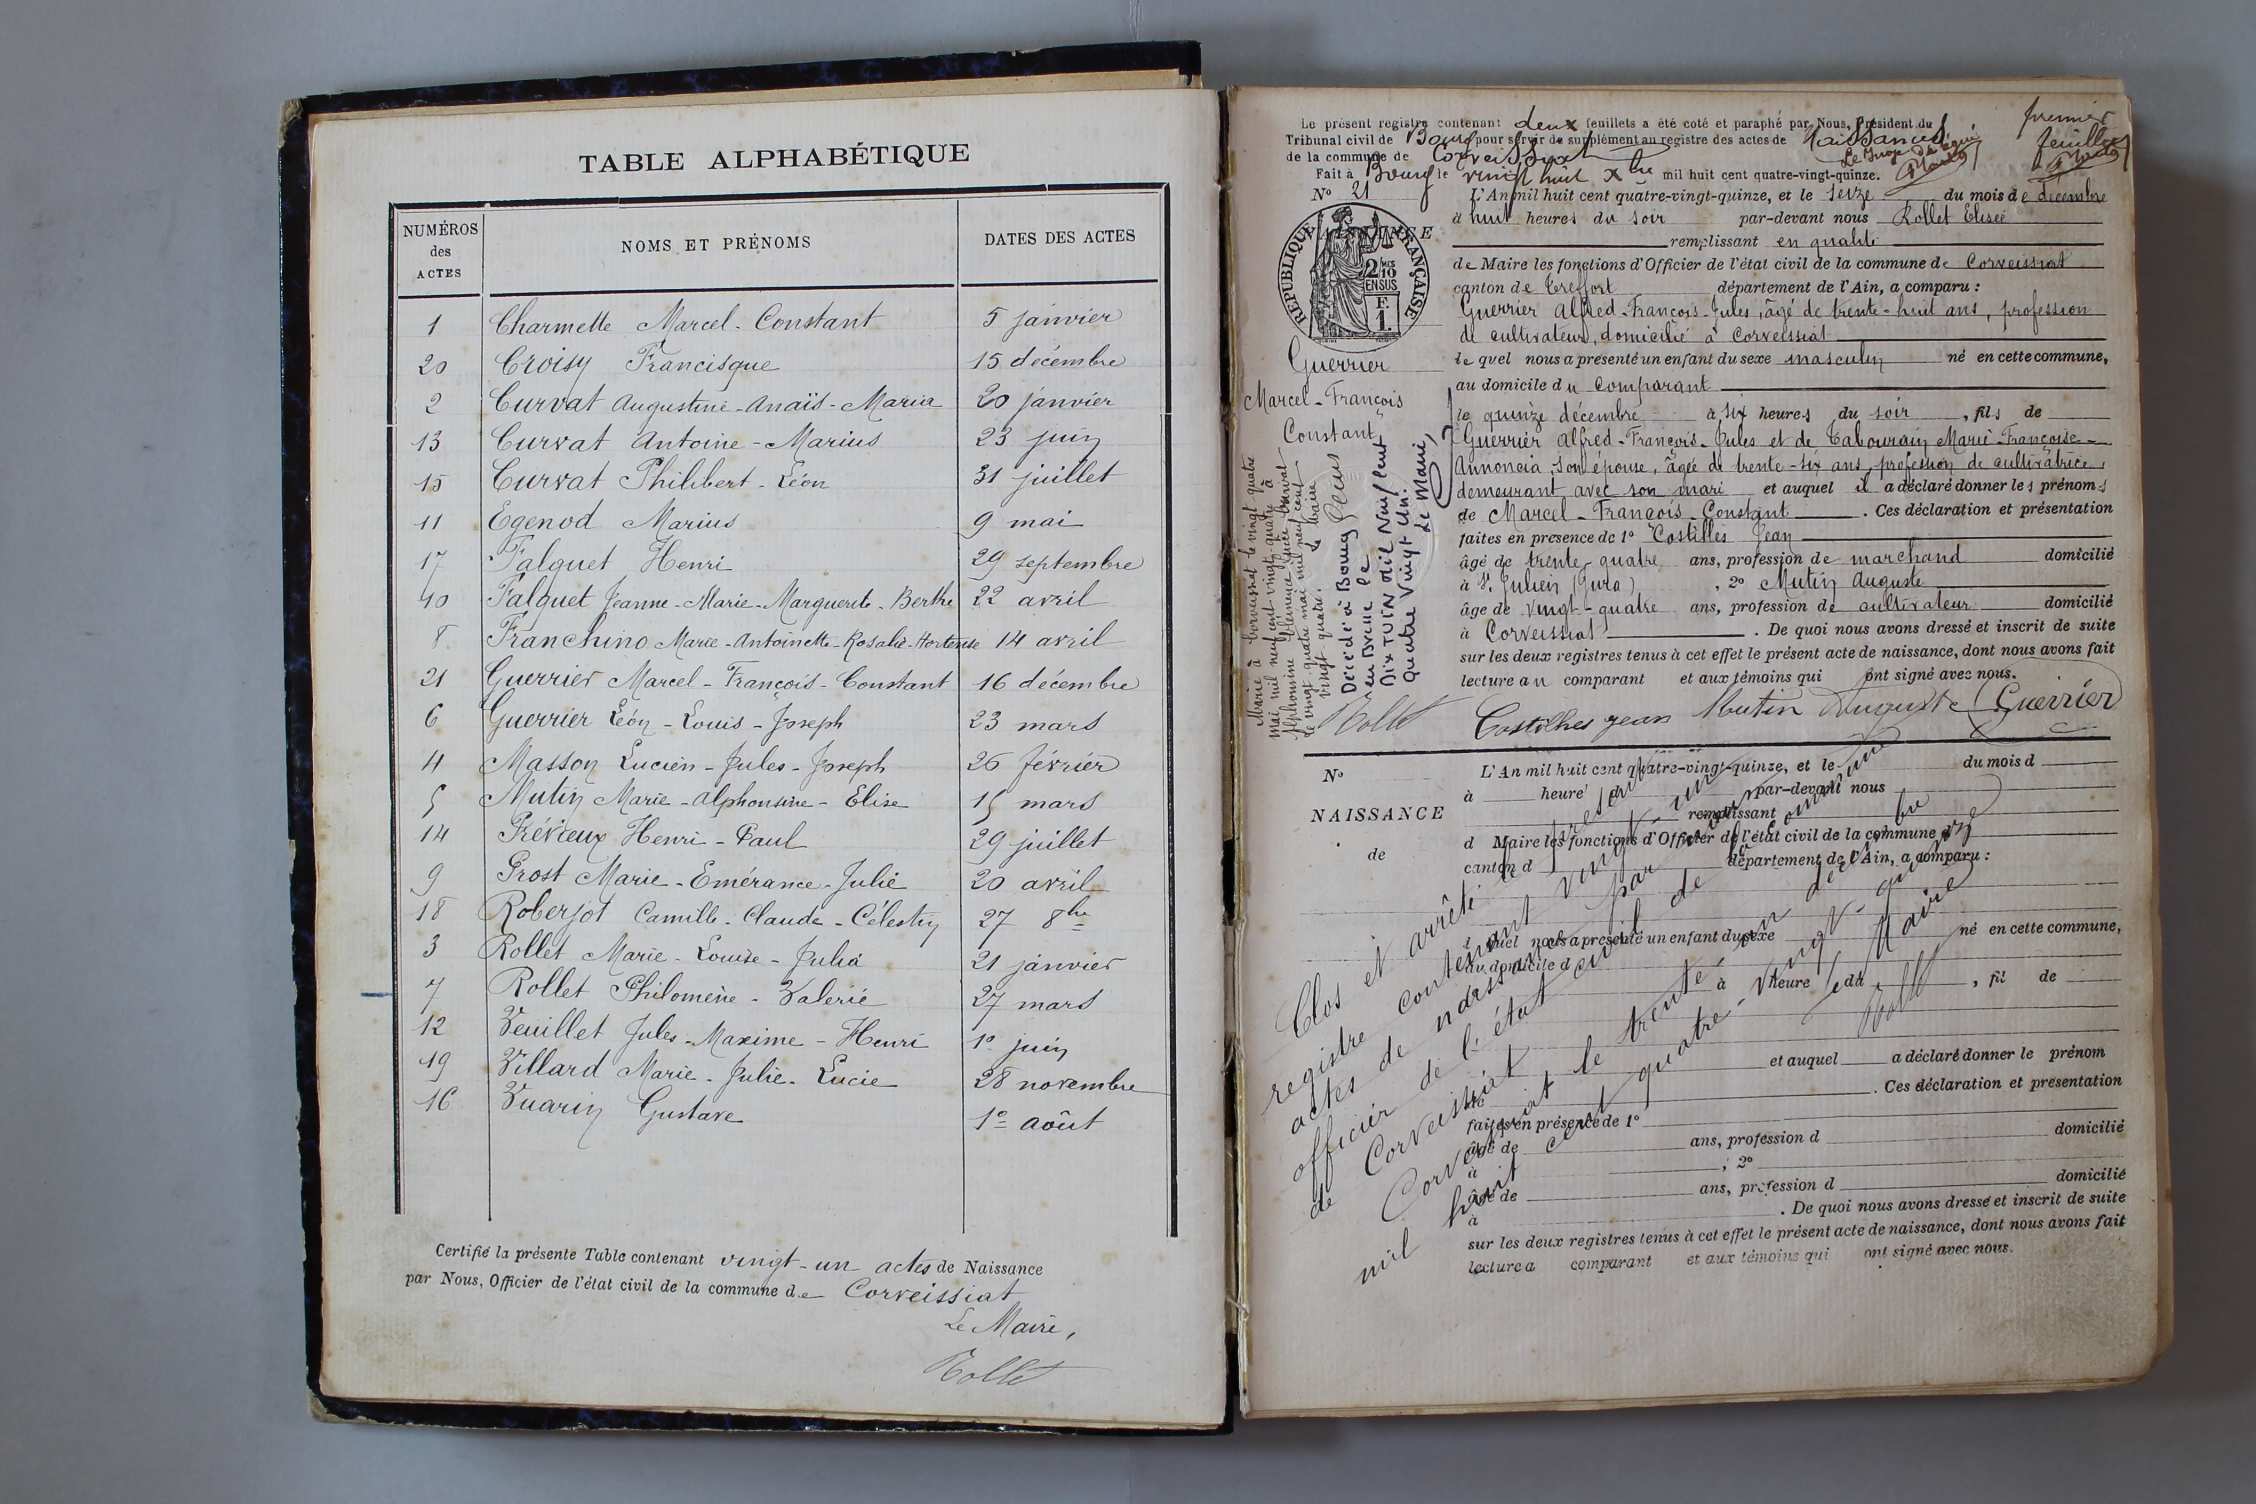 TABLE ALPHABÉTIQUE
NUMÉROS des ACTES
NOMS ET PRÉNOMS
DATES DES ACTES
1 Charmette Marcel-Constant 5 janvier
20 Croisy Francisque 15 décembre
2 Curvat Augustine-Anaïs-Maria 20 janvier
13 Curvat Antoine-Marius 23 juin
15 Curvat Philibert-Léon 31 juillet
11 Egenod Marius 9 mai
17 Falquet Henri 29 septembre
10 Falquet Jeanne-Marie-Marguerite-Berthe 22 avril
8 Franchino Marie-Antoinette-Rosalie-Hortense 14 avril
21 Guerrier Marcel-François-Constant 16 décembre
6 Guerrier Léon-Louis-Joseph 23 mars
4 Masson Lucien-Jules-Joseph 26 février
5 Mutin Marie-Alphonsine-Elise 15 mars
14 Prévieux Henri-Paul 29 juillet
9 Prost Marie-Emérance-Julie 20 avril
18 Roberjot Camille-Claude-Célestin 27 8bre
3 Rollet Marie-Louise-Julia 21 janvier
7 Rollet Philomène-Valérie 27 mars
12 Veuillet Jules-Maxime-Henri 1er juin
19 Villard Marie-Julie-Lucie 28 novembre
16 Vuarin Gustave 1er août
Certifié la présente Table contenant vingt-un actes de Naissance
par Nous, Officier de l'état civil de la commune de Corveissiat
Le Maire,
Rollet
Le présent registre contenant deux feuillets a été coté et paraphé par Nous, Président du
Tribunal civil de Bourg pour servir de supplément au registre des actes de Naissances
de la commune de Corveissiat
Fait à Bourg le vingt huit Xbre mil huit cent quatre-vingt-quinze.
Le Juge délégué
premier
feuillet
No 21
RÉPUBLIQUE FRANÇAISE
2/10 EN SUS
F. 1.
Guerrier
Marcel-François
Constant
L'An mil huit cent quatre-vingt-quinze, et le seize du mois de décembre
à huit heures du soir par-devant nous Rollet Elisée
remplissant en qualité
de Maire les fonctions d'Officier de l'état civil de la commune de Corveissiat
canton de Treffort département de l'Ain, a comparu :
Guerrier Alfred-François-Jules, âgé de trente-huit ans, profession
de cultivateur, domicilié à Corveissiat
lequel nous a présenté un enfant du sexe masculin né en cette commune,
au domicile du comparant
le quinze décembre à six heures du soir, fils de
Guerrier Alfred-François-Jules et de Tabourain Marie-Françoise-
Annoncia, son épouse, âgée de trente-six ans, profession de cultivatrice,
demeurant avec son mari et auquel il a déclaré donner les prénoms
de Marcel-François-Constant. Ces déclaration et présentation
faites en présence de 1o Costilles Jean
âgé de trente-quatre ans, profession de marchand domicilié
à St Julien (Jura), 2o Mutin Auguste
âgé de vingt-quatre ans, profession de cultivateur domicilié
à Corveissiat. De quoi nous avons dressé et inscrit de suite
sur les deux registres tenus à cet effet le présent acte de naissance, dont nous avons fait
lecture au comparant et aux témoins qui ont signé avec nous.
Rollet Costilhes jean Mutin Auguste Guerrier
Marié à le vingt quatre
mai mil neuf cent vingt quatre à
Alphonsine Clémence
le vingt quatre mai mil neuf cent
vingt quatre. Le Maire
Décédé à Bourg
en Bresse le
Dix JUIN Mil Neuf Cent
Quatre Vingt Un.
Le Maire,
No
NAISSANCE
de
L'An mil huit cent quatre-vingt-quinze, et le du mois d
à heure par-devant nous
remplissant
d Maire les fonctions d'Officier de l'état civil de la commune d
canton d département de l'Ain, a comparu :
l quel nous a présenté un enfant du sexe né en cette commune,
au domicile d
à heure du , fil de
et auquel a déclaré donner le prénom
de . Ces déclaration et présentation
faites en présence de 1o
âgé de ans, profession d domicilié
à , 2o
âgé de ans, profession d domicilié
à . De quoi nous avons dressé et inscrit de suite
sur les deux registres tenus à cet effet le présent acte de naissance, dont nous avons fait
lecture a comparant et aux témoins qui ont signé avec nous.
Clos et arrêté le présent
registre contenant vingt-un
actes de naissance par nous
officier de l'état civil de la commune
de Corveissiat
Corveissiat le trente-un décembre
mil huit cent quatre vingt-quinze
Le Maire
Rollet